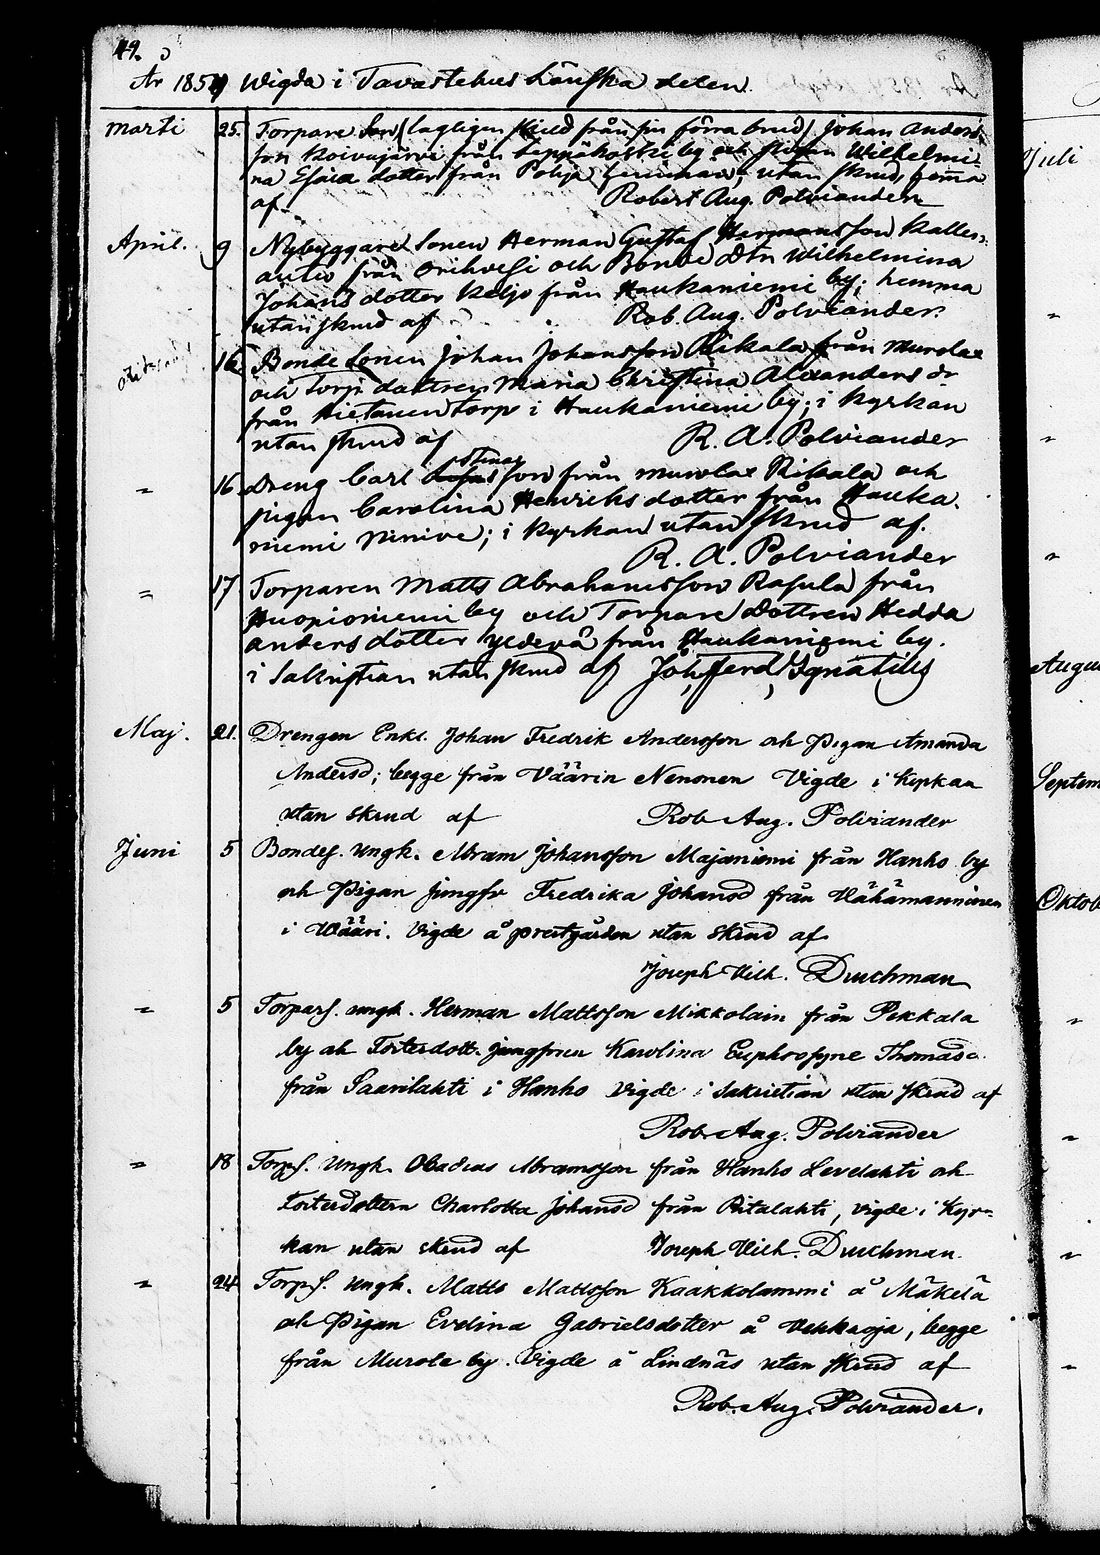 49.
År 1859 Wigda i Tavastehus Länska delen.
Marti 25. Torpare Son/lagligen skild från sin förra brud/ Johan Anders
son Koivujärvi från by och pigan Wilhelmi-
na Esaia dotter från Pohja utan skrud, hemma
af Robert Aug. Polviander
April. 9 Nybyggare Sonen Herman Gustaf Hermansson Kalles-
autio från Orihvesi och Bonde Dtn Wilhelmina
Johans dotter Keljo från Haukaniemi by; hemma
utan skrud af Rob. Aug. Polviander.
16. Bonde Sonen Johan Johansson Rikala från Murolax
och Torp. dottren Maria Christina Alexanders dr
från Hietanen torp i Haukaniemi by; i Kyrkan
utan skrud af R. A. Polviander
" 16 Dreng Carl Stenas son från Murolax Rikala och
pigan Carolina Henriks dotter från Hauka-
niemi Ninive; i Kyrkan utan skrud af.
R. A. Polviander
" 17 Torparen Matts Abrahamsson Rasula från
Huopioniemi by och Torpare Dottren Hedda
Anders dotter från Haukaniemi by.
i Sakristian utan skrud af Joh. Ferd. Ignatius
Maj. 21. Drengen Enkl. Johan Fredrik Andersson och Pigan Amanda
Andersd; begge från Väärin Nenonen Vigde i Kyrkan
utan skrud af Rob. Aug. Polviander
Juni 5 Bondes. ungk. Abram Johansson Majaniemi från Hanho by
och Pigan jungfr Fredrika Johansd från Vähämanninen
i Wääri. Vigde å prestgården utan skrud af
Joseph Vilh. Druchman
" 5 Torpars. ungk. Herman Mattsson Mikkolain från Pekkala
by och Torterdott. jungfrun Karolina Euphrosyne Thomasd.
från Saarilahti i Hanho Vigde i Sakristian utan skrud af
Rob. Aug. Polviander
" 18 Torps. Ungk. Obadias Abramsson från Hanho Levelahti och
torterdottern Charlotta Johansd från Ritalahti, vigde i Kyr-
kan utan skrud af Joseph Vilh. Druchman.
" 24 Torps. Ungk. Matts Mattsson Kaakkolammi å Mäkelä
och Pigan Evelina Gabrielsdotter å Vehkaoja, begge
från Murole by. Vigde å Lindnäs utan skrud af
Rob. Aug. Polviander.
Juli
"
"
"
Augu
Septem
Oktob
"
"
"
"